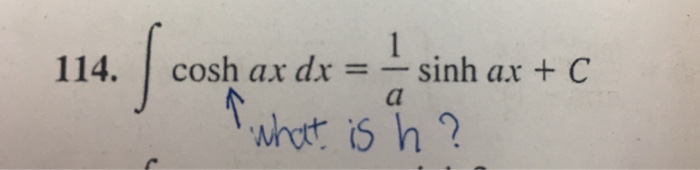 114. ∫ cosh ax dx = 1/a sinh ax + C
what is h?